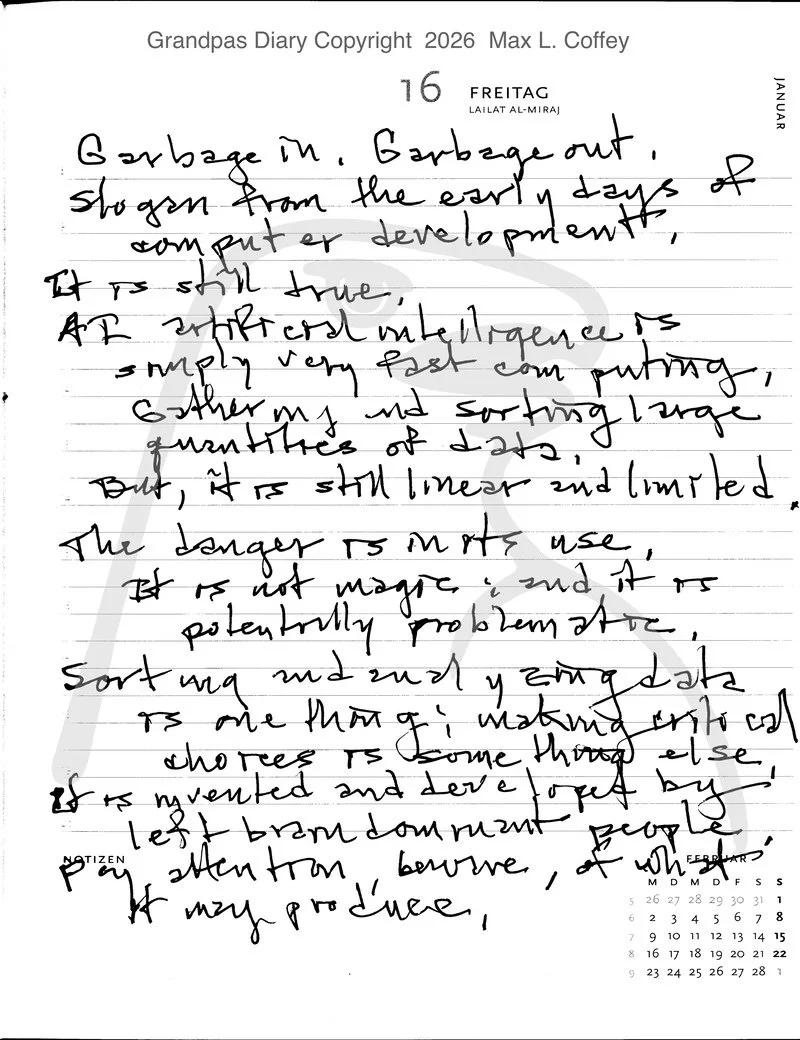 Grandpas Diary Copyright 2026 Max L. Coffey
16 FREITAG
LAILAT AL-MIRAJ
JANUAR
Garbage in. Garbage out.
Slogan from the early days of
computer developmentt.
It is still true.
AI artificial intelligence is
simply very fast computing,
Gathering and sorting large
quantities of data.
But, it is still linear and limited.
The danger is in its use.
It is not magic; and it is
potentially problematic.
Sorting and analyzing data
is one thing; making critical
choices is something else.
It is invented and developed by
left brain dominant people.
Pay attention, beware, of what
it may produce.
NOTIZEN
FEBRUAR
M D M D F S S
5 26 27 28 29 30 31 1
6 2 3 4 5 6 7 8
7 9 10 11 12 13 14 15
8 16 17 18 19 20 21 22
9 23 24 25 26 27 28 1